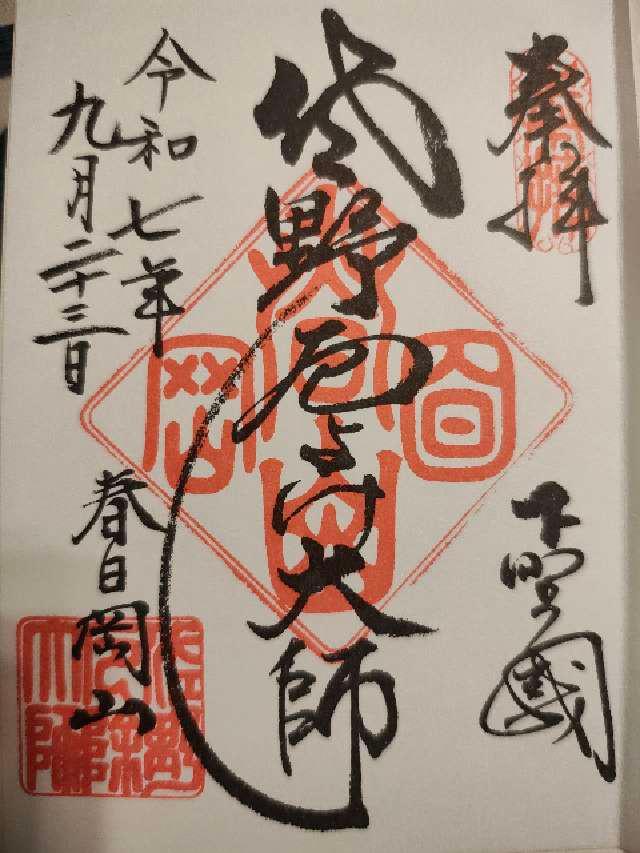 奉拝
下野國
佐野厄よけ大師
令和七年
九月二十三日
春日岡山